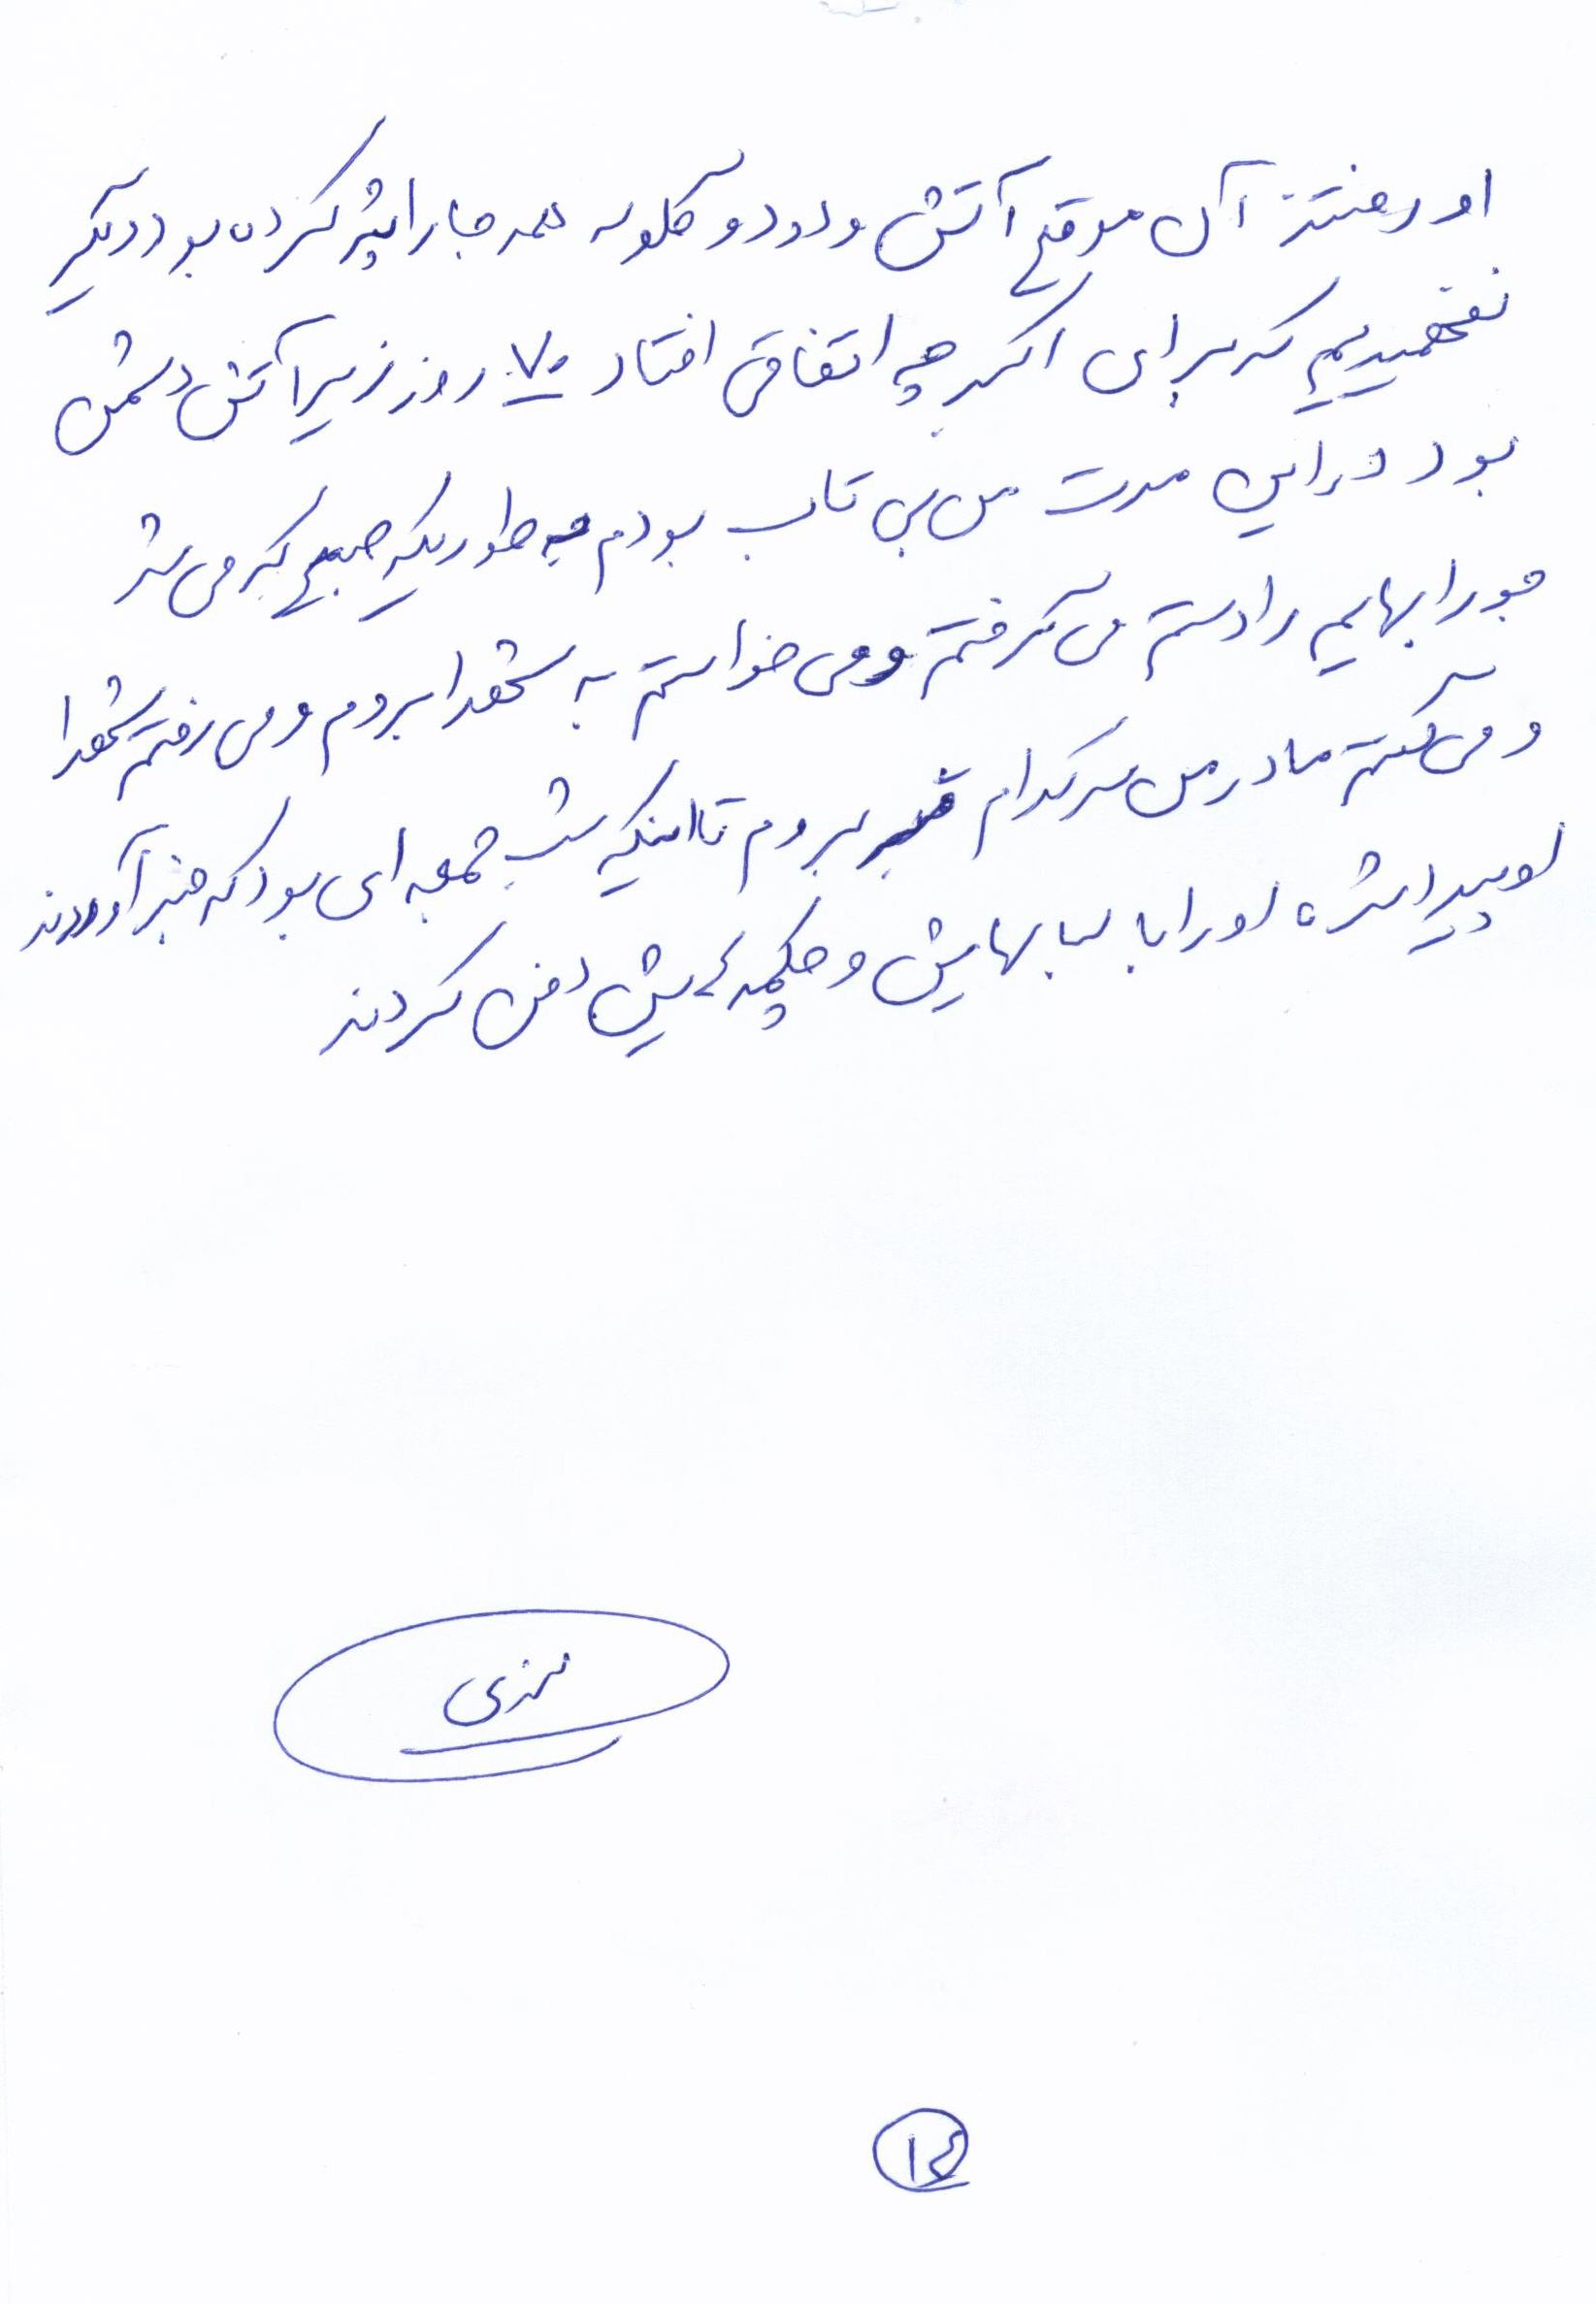 او رفتند آن موقع آتش و دود و گلوله همه جا را پر کرده بود دیگر
نفهمیدیم که برای اکبر چه اتفاقی افتاد ۷۰ روز زیر آتش دشمن
بود در این مدت من بی تاب بودم به طوریکه صبح که می شد
جورابهایم را دستم می گرفتم و می خواستم به شهدا بروم و می رفتم شهدا
و می گفتم مادر من سر کدام قبر بروم تا اینکه شب جمعه ای بود که خبر آوردند
او پیدا شده او را با لباسهایش و چکمه هایش دفن کردند
۱۴